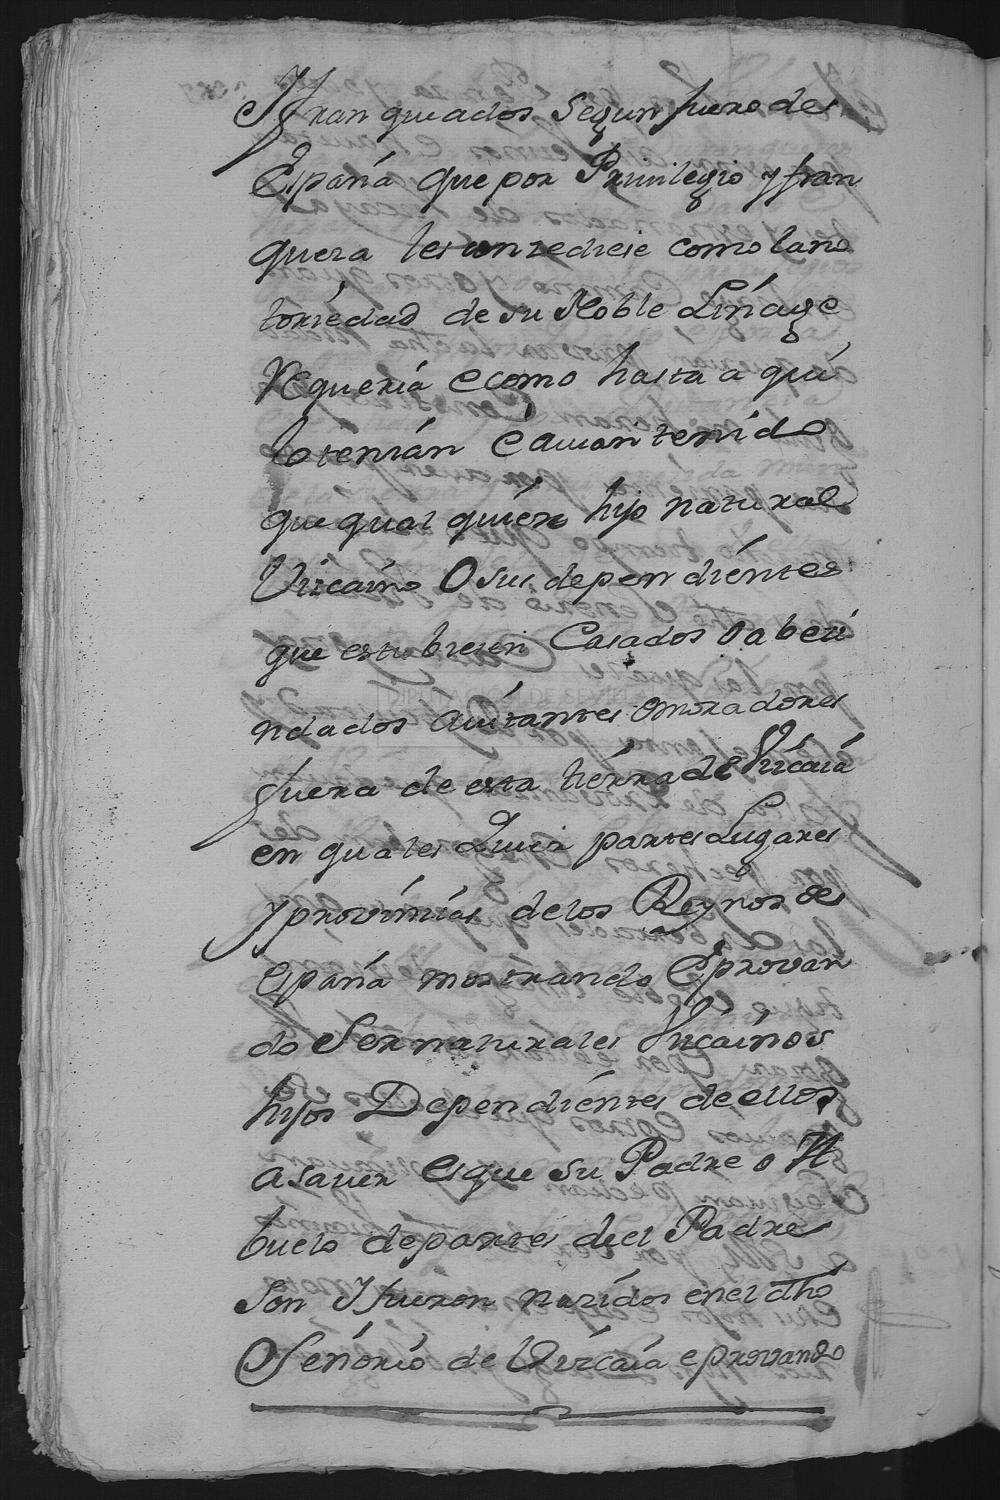 Yfranqueados Segun fuero de
España que por Privilegio y fran
queza les conzediese como la no
toriedad de su Noble Liñage
requeria e como hasta a qui
lo tenian e a mantenido
que qual quiere hijo natural
Vizcaino O sus dependientes
que estubiesen Casados O abeci
ndados avitantes o moradores
fuera de esta tierra de Vizcaia
en quales Quier partes Lugares
y provinzias de los Reynos de
españa mostrando E provan
do Ser naturales Vizcainos
hijos Dependientes de ellos
a saver es que su Padre o A
buelo de partes de el Padre
Son Y fueron nazidos en el dho
Señorio de Vizcaia e provando
DIPUTACION DE SEVILLA